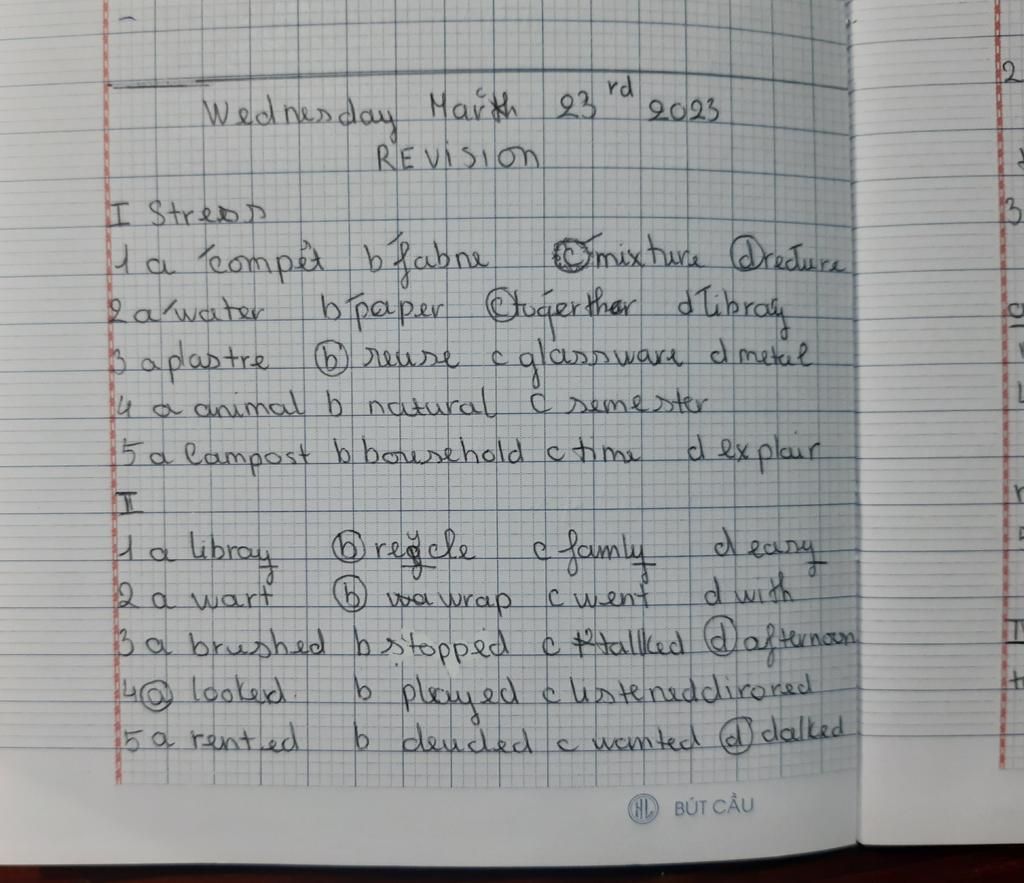 Wednesday March 23rd 2023
REVISION
I Stress
1 a compet b fabne c mixture d redure
2 a water b paper c togerther d libray
3 a plastre b reuse c glassware d metal
4 a animal b natural c semester
5 a Campost b bousehold c time d explair
II
1 a libray b regcle c famly d easy
2 a wart b wrap c went d with
3 a brushed b stopped c talked d afternoon
4 a looked b played c listened d irored
5 a rented b deuded c wanted d dalked
HL BÚT CẦU
2
3